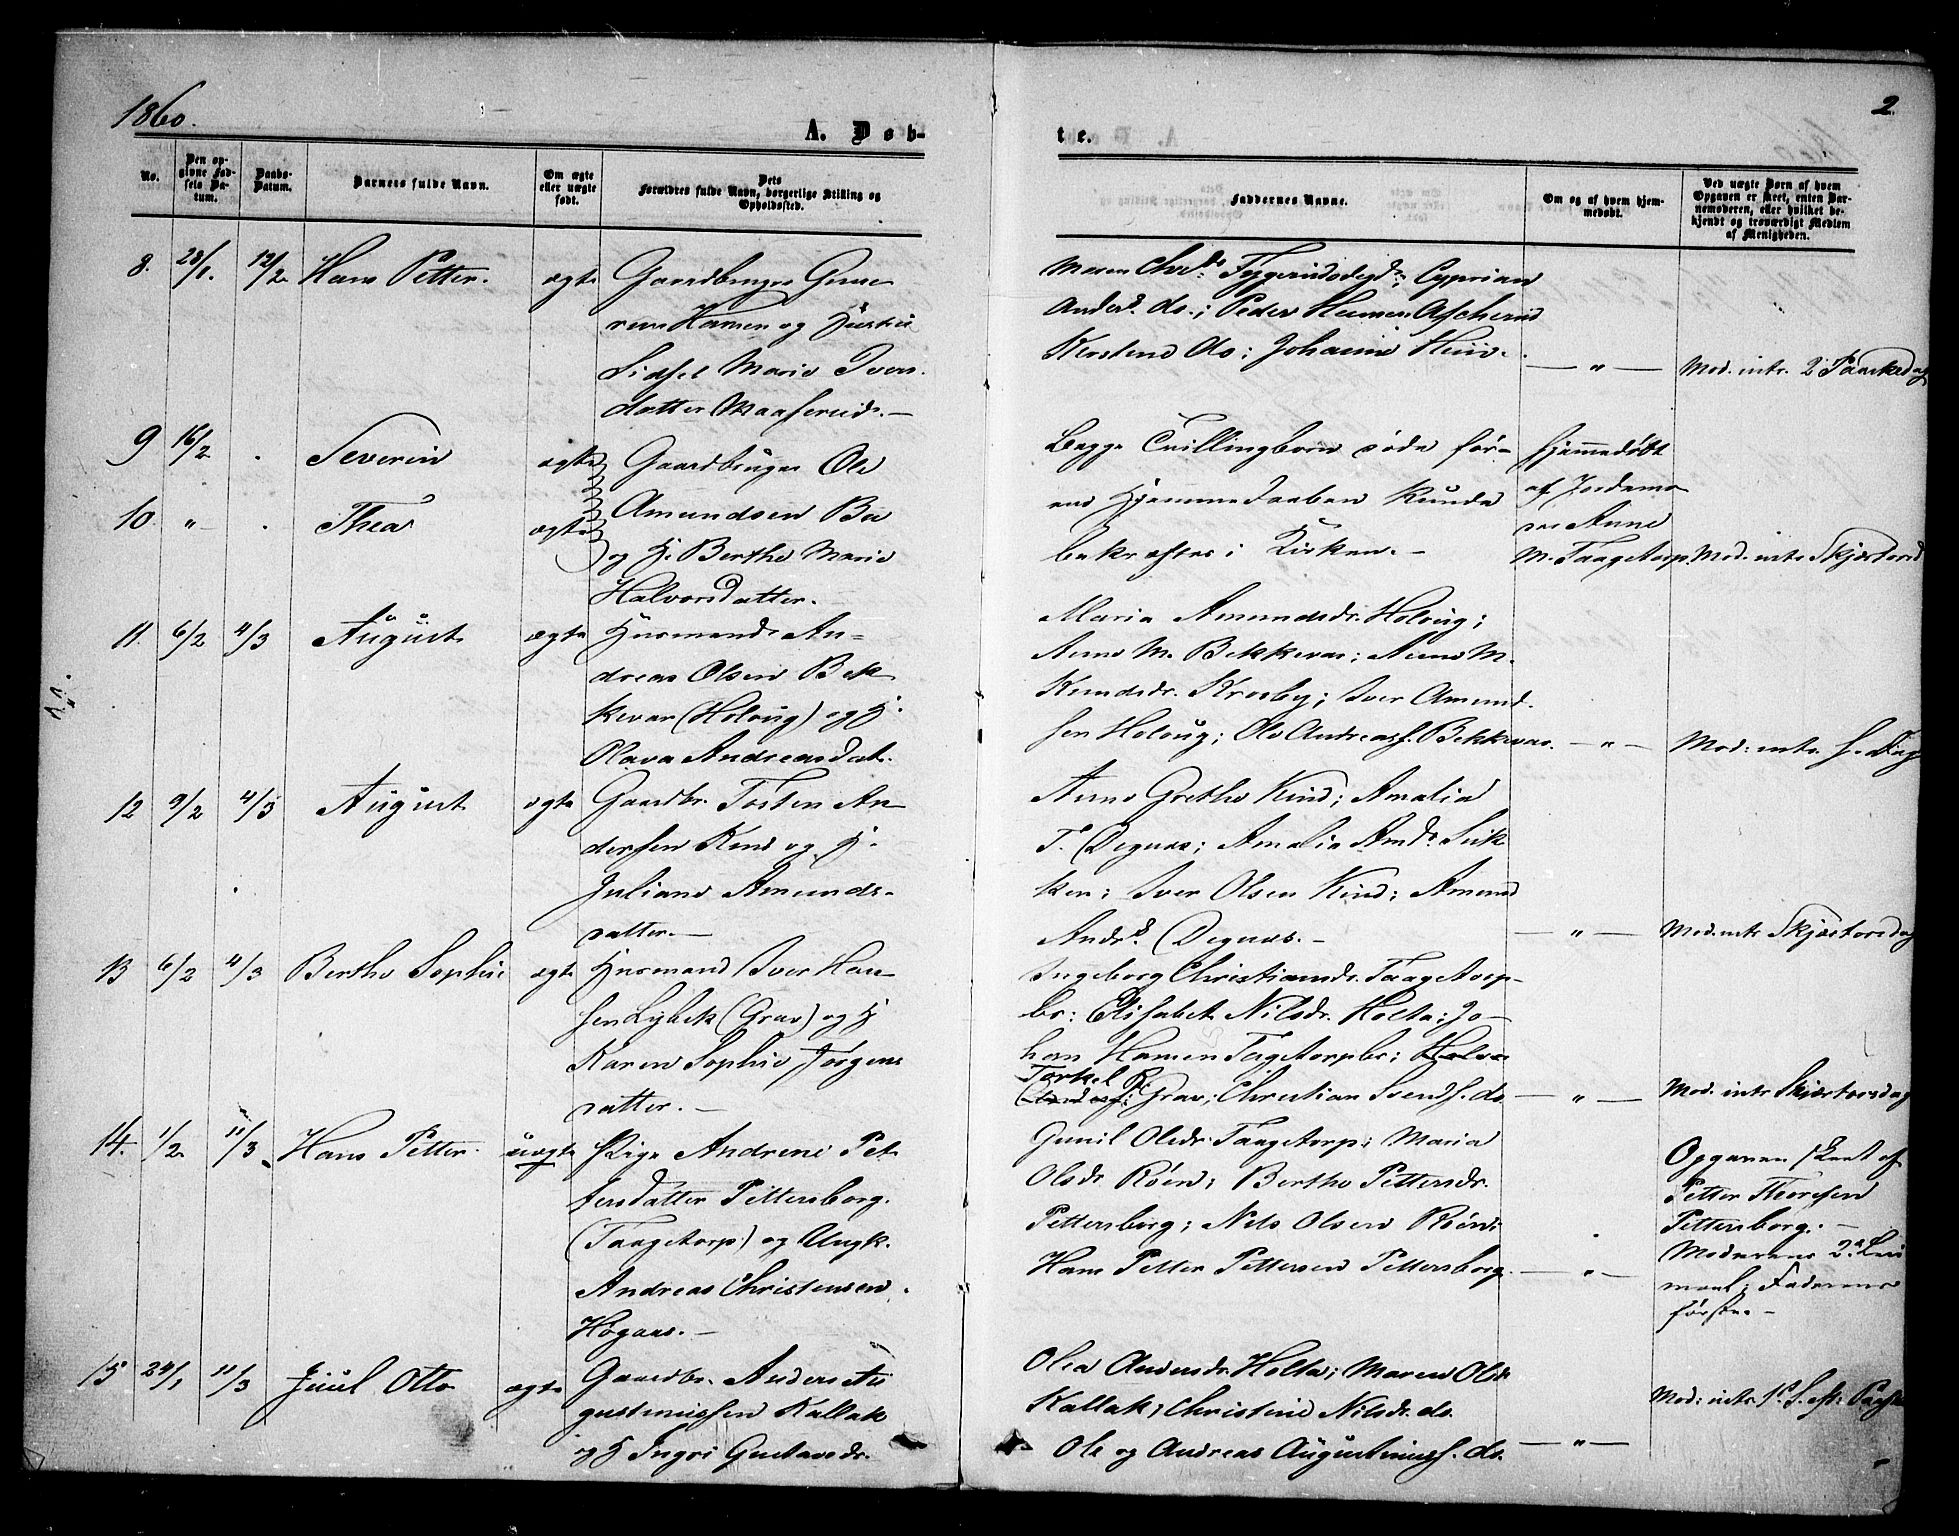 1860.
A. Døb-
te.
2
No.
Den op-
givne Fød-
sels Da-
tum.
Daabs-
Datum.
Barnets fulde Navn.
Om ægte
eller uægte
født.
Dets
Forældres fulde Navn, borgerlige Stilling og
Opholdssted.
Faddernes Navne.
Om og af hvem hjem-
medøbt.
Ved uægte Børn af hvem
Opgaven er skeet, enten Bar-
nemoderen, eller hvilket be-
kjendt og troværdigt Medlem
af Menigheden.
8. 28/1. 12/2. Hans Petter. ægte Gaardbruger
Hansen og Hustru
Lidsel Marie Ivers-
datter
Maren Chrs. Cyprian
Anders. do.; Peder
Kerstine do; Johanne
— " — Mod. intr. 2 Paaskedag
9 16/2 . Severin ægte Gaardbruger Ole
10. " . Thea ægte Amundsen Bø
og H. Berthe Marie
Halvorsdatter.
Begge Tvillingbørn døde før-
end Hjemmedaaben kunde
bekræftes i Kirken. -
Hjemmedøbt
af Jordemo-
r Anne
M. Taagetorp. Mod. intr. Skjærtorsd
11. 6/2 4/3 August ægte Husmand An-
dreas Olsen Bek-
kevar (Holoug) og H.
Olava Andreasdat.
Maria Amundsdr. Holoug;
Anne M. Bekkevar; Anne M.
Knudsdr. Krosby; Iver Amund-
sen Holoug; Ole Andreass. Bekkevar. — " — Mod. intr. s. Dag
12 9/2 4/3 August ægte Gaardbr. Tosten An-
dersen Kind og H.
Juliane Amunds-
datter. —
Anne Grethe Kind; Amalia
T. Degnæs; Amalia Amds.
Iver Olsen Kind; Amund
Andrs. Degnæs. -
— " — Mod. intr. Skjærtorsdag
13 6/2 4/3 Berthe Sophie ægte Husmand Iver Han-
sen Lybek (Grav) og H
Karen Sophie Jørgens-
datter. —
Ingeborg Christiansdr. Taagetorp-
br; Elisabet Nilsdr. Holta; Jo-
han Hansen Tagetorpbr;
Torkel
Grav; Christian Svends. do. — " — Mod. intr. Skjærtorsdag
14. 1/2 11/3 Hans Petter. uægte Pige Andrine Pet-
tersdatter Pettersborg.
(Taagetorp) og Ungk.
Andreas Christensen
Høgaas. —
Gunil Olsdr. Taagetorp; Maria
Olsdr. Røen; Berthe Pettersdr.
Pettersborg; Nils Olsen Røen;
Hans Petter Pettersen Pettersborg. — " —
Opgaven skeet af
Petter
Pettersborg. —
Moderens 2det Lei-
maal; Faderens
første. -
15 24/1 11/3 Juul Otto ægte Gaardbr. Anders Au-
gustinussen Kallak
og H Ingri Gustavsdr.
Olea Andersdr. Holta; Maren Olsdr
Kallak; Christine Nilsdr. do.
Ole og Andreas Augustinuss. do. — " —
Mod. intr. 1ste S. eft. Paaske